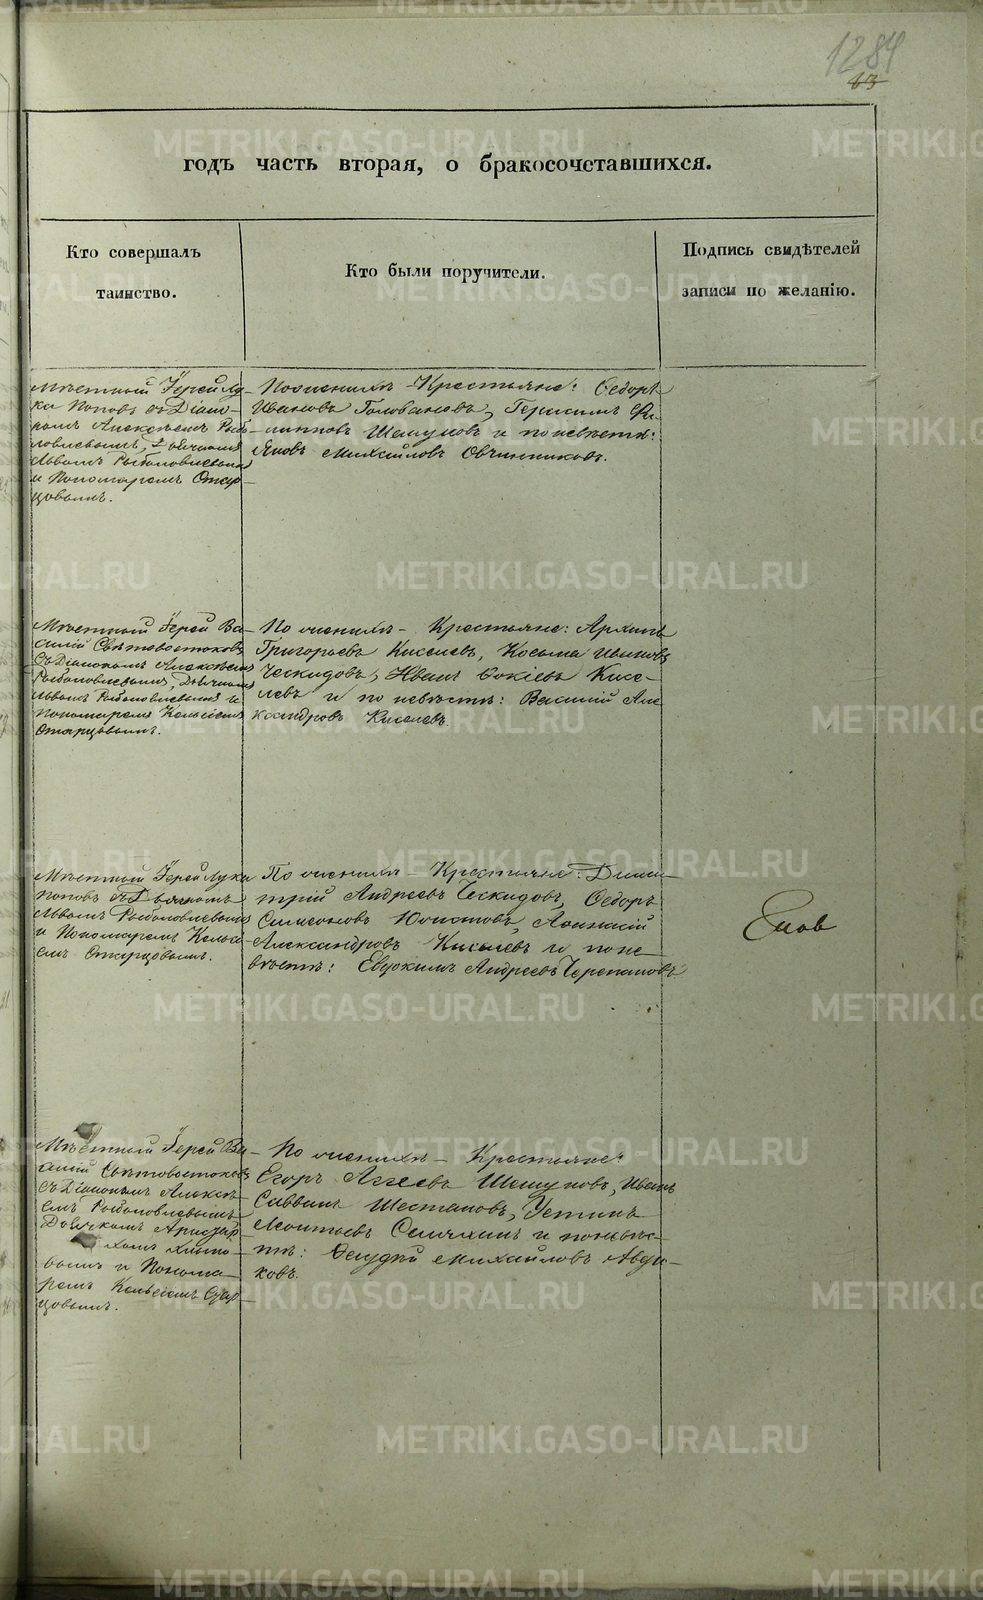 1284
63
годъ часть вторая, о бракосочетавшихся.
Кто совершалъ
таинство.
Кто были поручители.
Подпись свидѣтелей
записи по желанію.
Мѣстный Іерей Лу-
ка Попов съ Діако-
номъ Алексѣемъ Рыбо-
ловлевымъ, Дьячкомъ
Львомъ Рыболовлевымъ
и Пономаремъ Стар-
цовымъ.
По женихѣ - Крестьяне: Ѳедоръ
Ивановъ Головановъ, Герасимъ Фи-
липповъ Шешуковъ и по невѣстѣ:
Яковъ Михайловъ Овчинниковъ.
Мѣстный Іерей Ва-
силій Свѣтовостоковъ
съ Діакономъ Алексѣемъ
Рыболовлевымъ, Дьячкомъ
Львомъ Рыболовлевымъ и
Пономаремъ Кельсіемъ
Старцовымъ.
По женихѣ - Крестьяне: Архипъ
Григорьевъ Киселевъ, Косьма Ивановъ
Ческидовъ, Иванъ Фокіевъ Кисе-
левъ и по невѣстѣ: Василій Але-
ксандровъ Киселевъ.
Мѣстный Іерей Лука
Поповъ съ Дьячкомъ
Львомъ Рыболовлевымъ
и Пономаремъ Кельсі-
емъ Старцовымъ.
По женихѣ - Крестьяне: Дими-
трій Андреевъ Ческидовъ, Ѳедоръ
Симеоновъ
Александровъ Киселевъ и по не-
вѣстѣ: Евдокимъ Андреевъ Черепановъ
Мѣстный Іерей Ва-
силій Свѣтовостоковъ
съ Діакономъ Алексѣ-
емъ Рыболовлевымъ
Дьячкомъ
и Понома-
ремъ Кельсіемъ Стар-
цовымъ.
По женихѣ - Крестьяне:
Егоръ Агѣевъ Шешуковъ, Иванъ
Саввинъ Шестаковъ, Устинъ
Леонтьевъ и по невѣс-
тѣ: Михайловъ Авдю-
ковъ.
METRIKI.GASO-URAL.RU